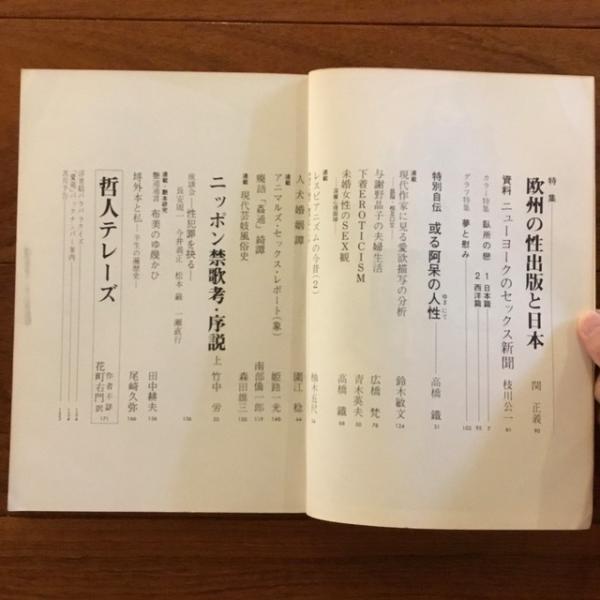 特集
欧州の性出版と日本 関 正義 90
資料 ニューヨークのセックス新聞 枝川公一 81
カラー特集 臥所の戀 1 日本篇 7
2 西洋篇 95
グラフ特集 夢と慰み 102
特別自伝 或る阿呆の人性 高橋 鐵 51
連載
現代作家に見る愛欲描写の分析 鈴木敏文 124
与謝野晶子の夫婦生活 広橋 梵 76
下着EROTICISM 青木英夫 50
未婚女性のSEX観 高橋 鐵 68
連載
レスビアニズムの今昔(2)
人犬婚姻譚 園江 稔 44
連載
アニマルズ・セックス・レポート(象) 姫路一光 140
廃語「姦通」綺譚 南部僑一郎 119
連載
現代芸妓風俗史 森田雄三 130
ニッポン禁歌考・序説 上 竹中 労 35
座談会―性犯罪を抉る― 156
長安周一 今井義正 松本 巌 一瀬直行
連載・艶本研究
艶道通言 布美のゆ幾かひ 田中耕夫 136
埒外本と私―半生の遍歴史― 尾崎久弥 146
哲人テレーズ 作者不詳 花町右門 訳 171